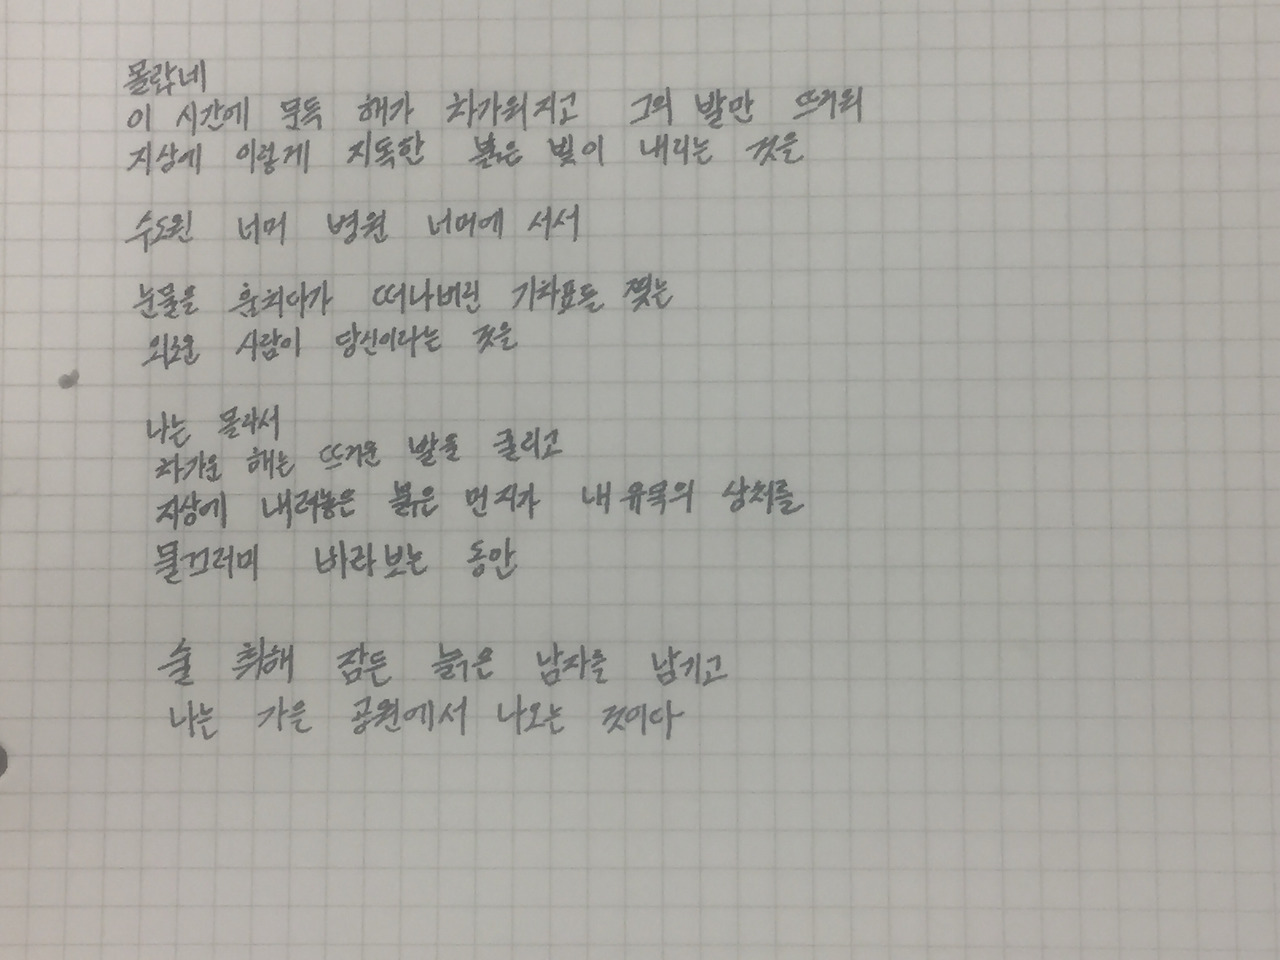 몰랐네
이 시간에 문득 해가 차가워지고 그의 발만 뜨거워
지상에 이렇게 지독한 붉은 빛이 내리는 것을
수도원 너머 병원 너머에 서서
눈물을 훔치다가 떠나버린 기차표를 찢는
외로운 사람이 당신이라는 것을
나는 몰라서
차가운 해는 뜨거운 발을 굴리고
지상에 내려놓은 붉은 먼지가 내 유목의 상처를
물끄러미 바라보는 동안
술 취해 잠든 늙은 남자를 남기고
나는 가을 공원에서 나오는 것이다